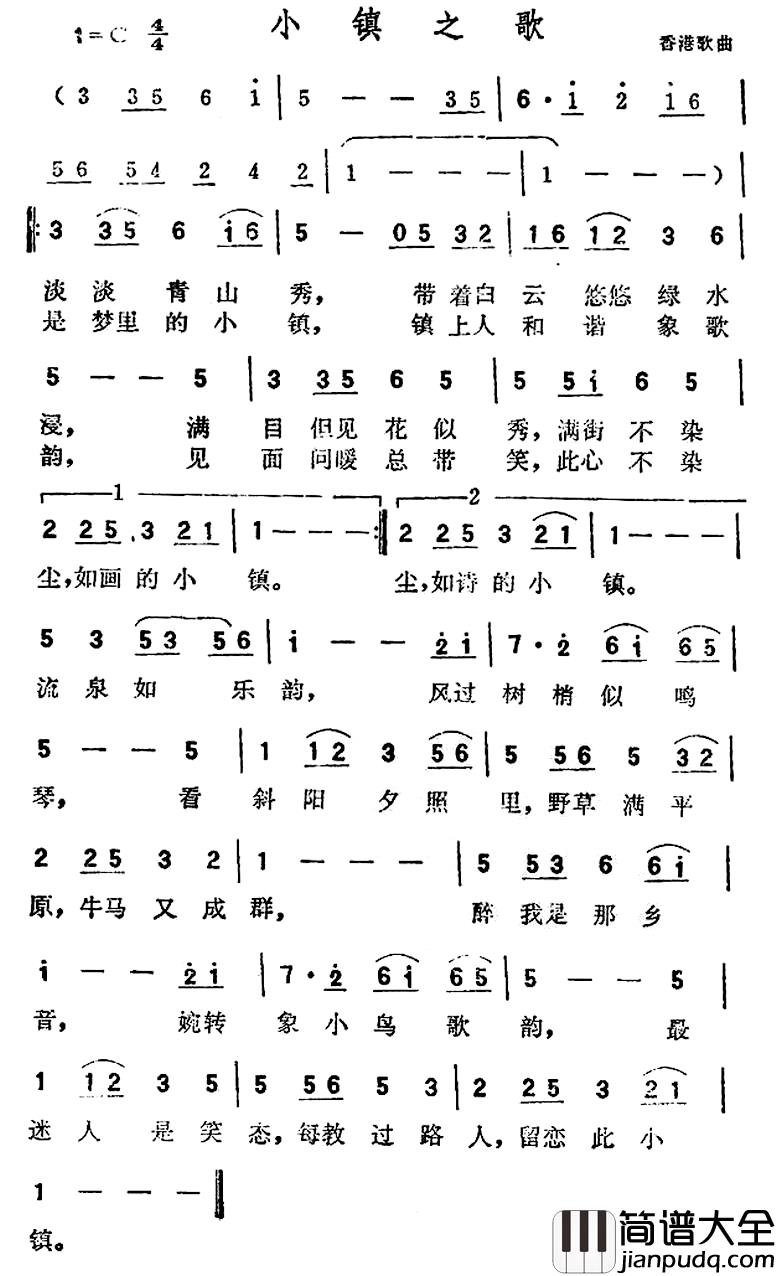 1=C 4/4 小镇之歌 香港歌曲
(3 35 6 i | 5 — — 35 | 6· i 2 i6 |
56 54 2 4 2 | 1 — — — | 1 — — —) |
|: 3 35 6 i6 | 5 — 05 32 | 16 12 3 6 |
淡淡青山秀，带着白云悠悠绿水
是梦里的小镇，镇上人和谐象歌
5 — — 5 | 3 35 6 5 | 5 5i 6 5 |
浸，满目但见花似秀，满街不染
韵，见面问暖总带笑，此心不染
1 2
2 25 . 3 21 | 1 — — — :| 2 25 3 21 | 1 — — — |
尘，如画的小镇。尘，如诗的小镇。
5 3 53 56 | i — — 2i | 7· 2 6i 65 |
流泉如乐韵，风过树梢似鸣
5 — — 5 | 1 12 3 56 | 5 56 5 32 |
琴，看斜阳夕照里，野草满平
2 25 3 2 | 1 — — — | 5 53 6 6i |
原，牛马又成群，醉我是那乡
i — — 2i | 7· 2 6i 65 | 5 — — 5 |
音，婉转象小鸟歌韵，最
1 12 3 5 | 5 56 5 3 | 2 25 3 21 |
迷人是笑态，每教过路人，留恋此小
1 — — — ‖
镇。
简谱大全
jianpudq.com